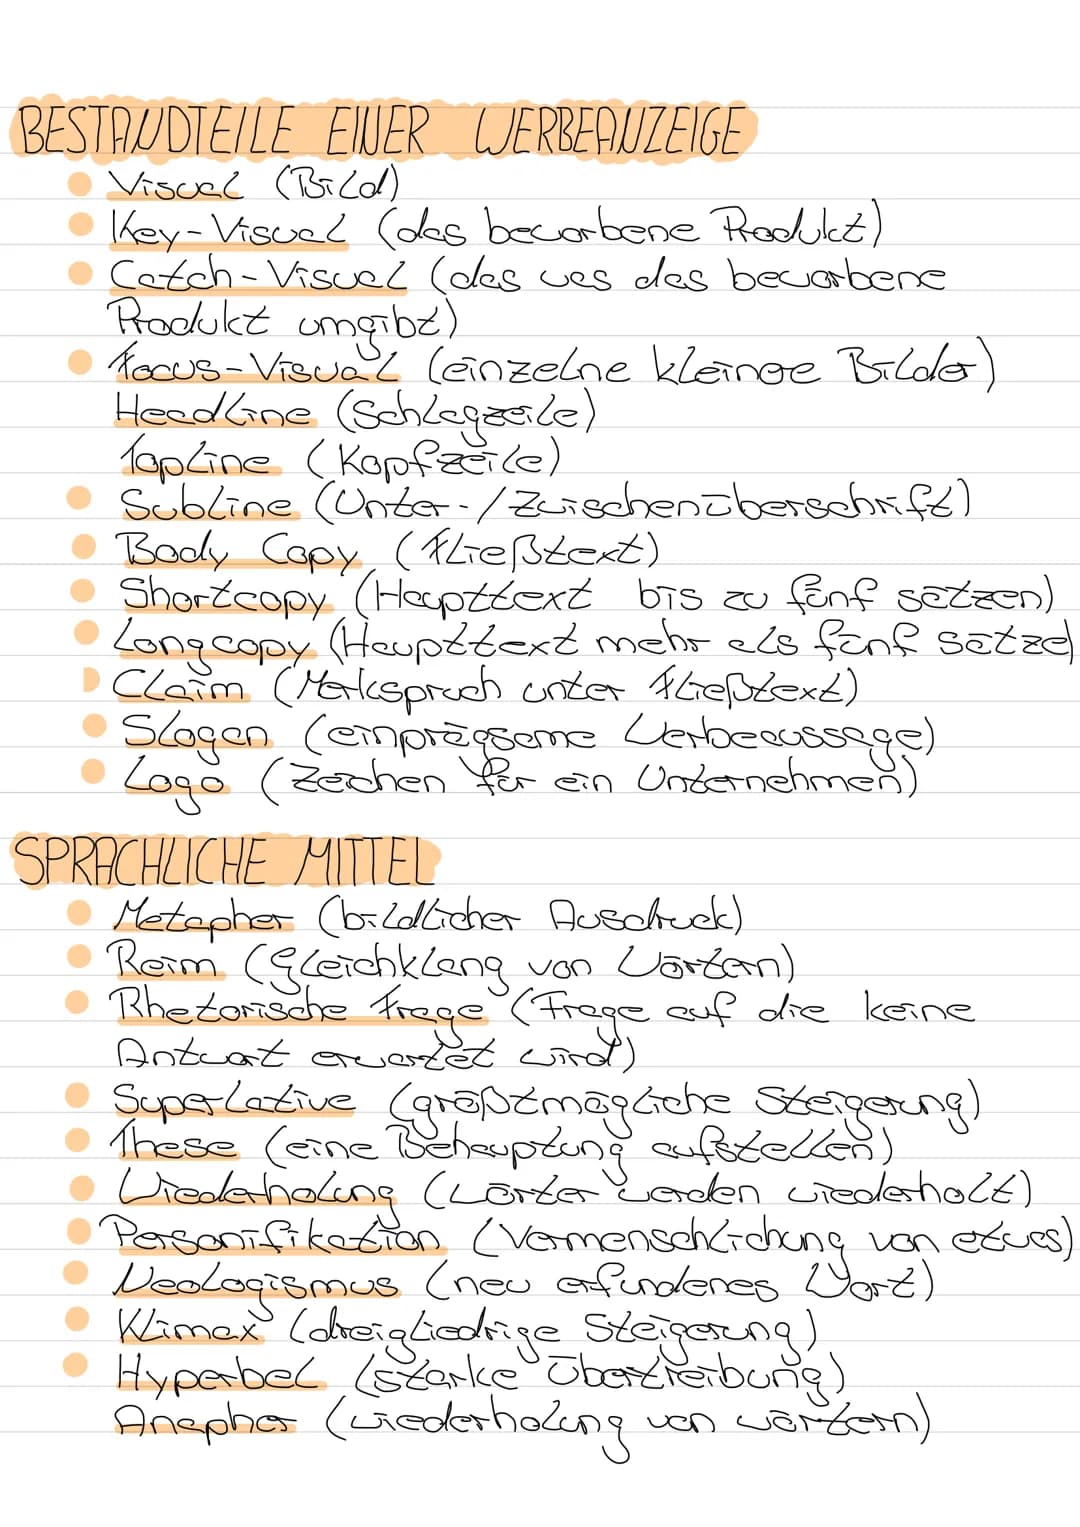 BESTANDTEILE EINER WERBEANZEIGE
Visual (Bild)
Key-Visual (das beworbene Produkt)
Catch-Visual (das was das beworbene
Produkt umgibt)
Focus-Visual (einzelne kleinge Bilder)
Headline (Schlagzeile)
Topline (Kopfzeile)
Subline (Unter-/Zwischenüberschrift)
Body Copy (Fließtext)
Shortcopy (Haupttext bis zu fünf sätzen)
Longcopy (Haupttext mehr als fünf sätze)
Claim (Merkspruch unter Fließtext)
Slogan (einprägsame Werbeaussage)
Logo (Zeichen für ein Unternehmen)
SPRACHLICHE MITTEL
Metapher (bildlicher Ausdruck)
Reim (Gleichklang von Wörtern)
Rhetorische Frage (Frage auf die keine
Antwort erwartet wird)
Superlative (größtmögliche Steigerung)
These (eine Behauptung aufstellen)
Wiederholung (Wörter werden wiederholt)
Personifikation (Vermenschlichung von etwas)
Neologismus (neu erfundenes Wort)
Klimax (dreigliedrige Steigerung)
Hyperbel (starke Übertreibung)
Anapher (wiederholung von wörtern)